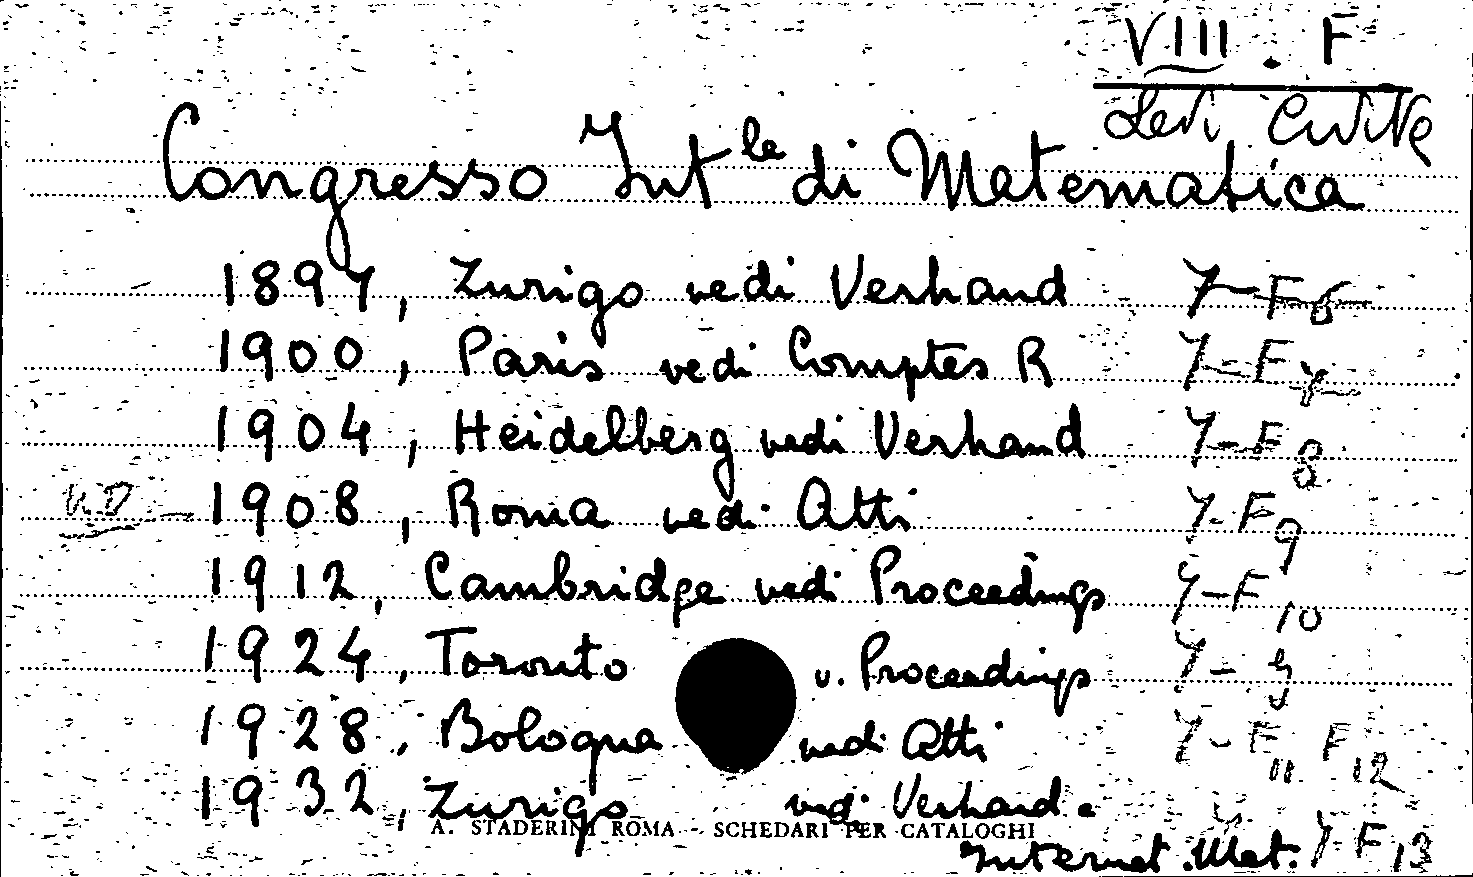 VIII . F
Congresso Int le di Matematica
1897, Zurigo vedi Verhand 7-F6
1900, Paris vedi Comptes R 7-F7
1904, Heidelberg vedi Verhand 7-F8
1908, Roma vedi Atti 7-F9
1912, Cambridge vedi Proceedings 7-F10
1924, Toronto v. Proceedings 7-
1928, Bologna vedi Atti 7-F11 F12
1932, Zurigo vedi Verhand.
A. STADERINI ROMA - SCHEDARI PER CATALOGHI
Internat. Mat. 7-F13